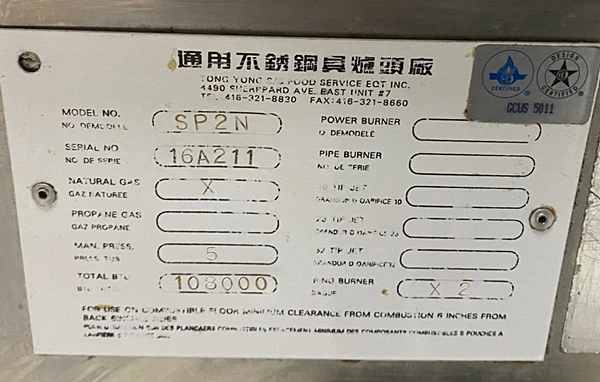 通用不銹鋼具爐頭廠
TONG YONG S/S FOOD SERVICE EQT INC.
4490 SHERPPARD AVE. EAST UNIT #7
TEL: 416-321-8830 FAX: 416-321-8660
CERTIFIED
DESIGN CERTIFIED
GCUS 5011
MODEL NO. SP2N POWER BURNER
NO. DEMODELE O. DEMODELE
SERIAL NO 16A211 PIPE BURNER
NO. DE SERIE NO. DE SERIE
NATURAL GAS X 10 TIP JET
GAZ NATUREE 10
PROPANE GAS 23 TIP JET
GAZ PROPANE 23
MAN. PRESS. 5 32 TIP JET
PRESS. TUB
TOTAL BTU 108000 RING BURNER X 2
BAGUE
FOR USE ON COMBUSTIBLE FLOOR MINIMUM CLEARANCE FROM COMBUSTION 6 INCHES FROM
BACK 6 INCHES SIDES
MINIMUM DES COMPOSANTS COMBUSTIBLES 6 POUCHES A